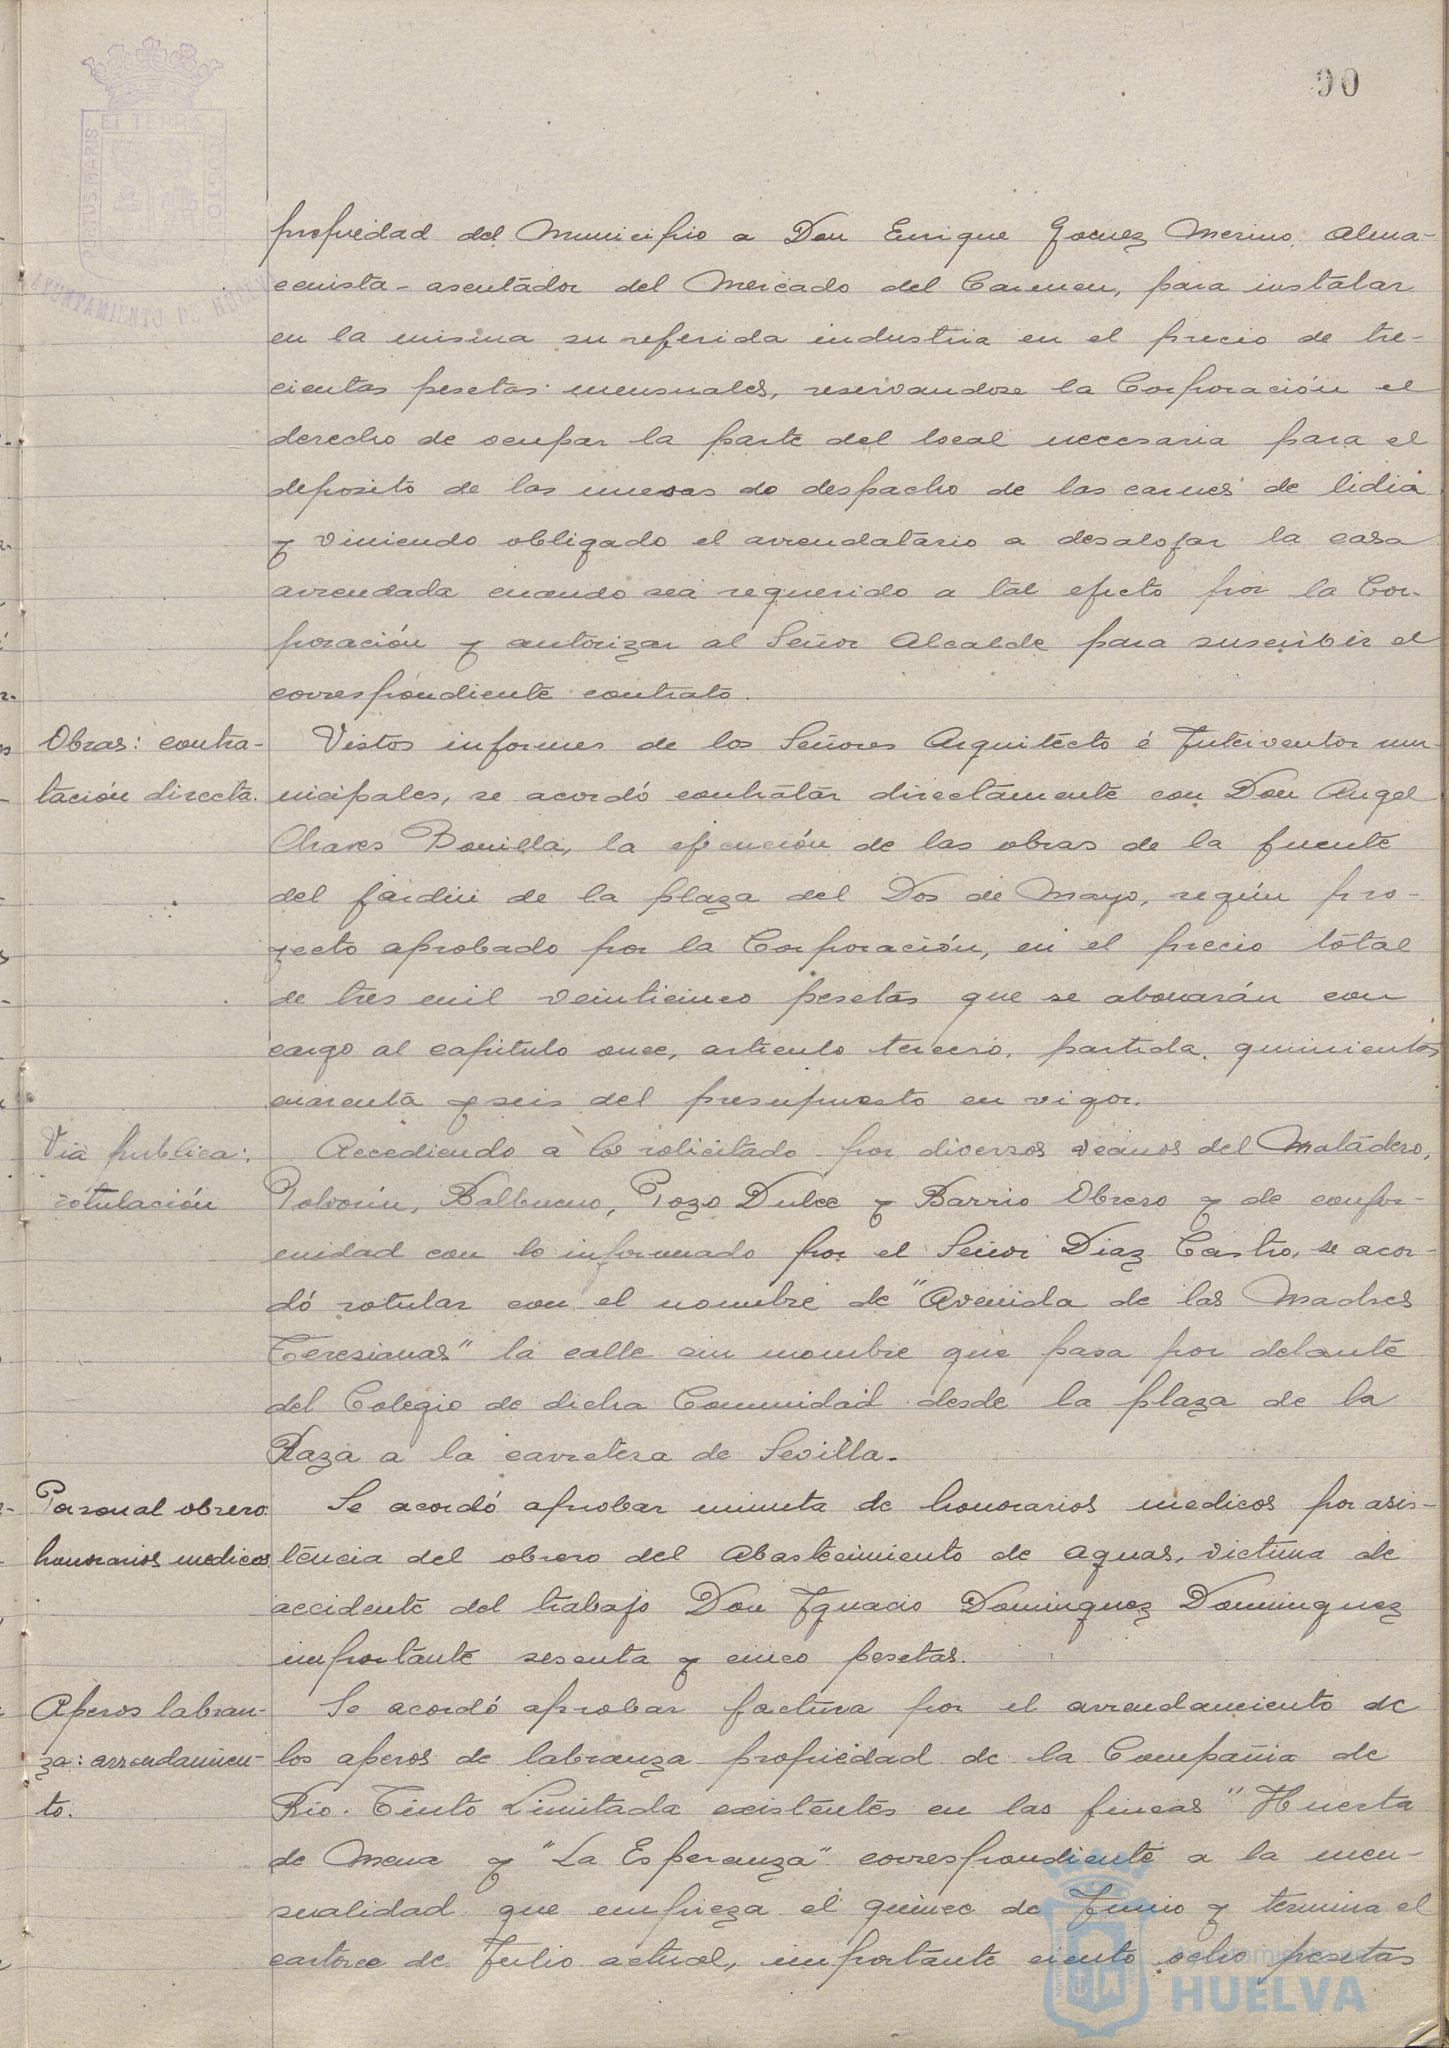 90
PORTUS MARIS ET TERRAE CUSTODIA
AYUNTAMIENTO DE HUELVA
propiedad del Municipio a Don Enrique Gomez Merino, alma-
cenista-asentador del Mercado del Carmen, para instalar
en la misma su referida industria en el precio de tre-
cientas pesetas mensuales, reservandose la Corporación el
derecho de ocupar la parte del local necesaria para el
deposito de las mesas de despacho de las carnes de lidia
y viniendo obligado el arrendatario a desalojar la casa
arrendada cuando sea requerido a tal efecto por la Cor-
poración y autorizar al Señor Alcalde para suscribir el
correspondiente contrato.
Obras: contra-
tación directa.
Vistos informes de los Señores Arquitecto é Interventor mu-
nicipales, se acordó contratar directamente con Don Angel
Chaves Bonilla, la ejecución de las obras de la fuente
del jardin de la plaza del Dos de Mayo, según pro-
yecto aprobado por la Corporación, en el precio total
de tres mil veinticinco pesetas que se abonarán con
cargo al capitulo once, articulo tercero, partida quinientos
cuarenta y seis del presupuesto en vigor.
Via publica:
rotulación
Accediendo a lo solicitado por diversos vecinos del Matadero,
Polvorin, Balbueno, Pozo Dulce y Barrio Obrero y de confor-
midad con lo informado por el Señor Diaz Castro, se acor-
dó rotular con el nombre de "Avenida de las Madres
Teresianas" la calle sin nombre que pasa por delante
del Colegio de dicha Comunidad desde la plaza de la
Raza a la carretera de Sevilla.
Personal obrero:
honorarios medicos
Se acordó aprobar minuta de honorarios medicos por asis-
tencia del obrero del Abastecimiento de aguas, victima de
accidente del trabajo Don Ignacio Dominguez Dominguez
importante sesenta y cinco pesetas.
Aperos labran-
za: arrendamien-
to.
Se acordó aprobar factura por el arrendamiento de
los aperos de labranza propiedad de la Compañia de
Rio-Tinto Limitada existentes en las fincas "Huerta
de Mena y "La Esperanza" correspondiente a la men-
sualidad que empieza el quince de Junio y termina el
catorce de Julio actual, importante ciento ocho pesetas
Ayuntamiento de
HUELVA